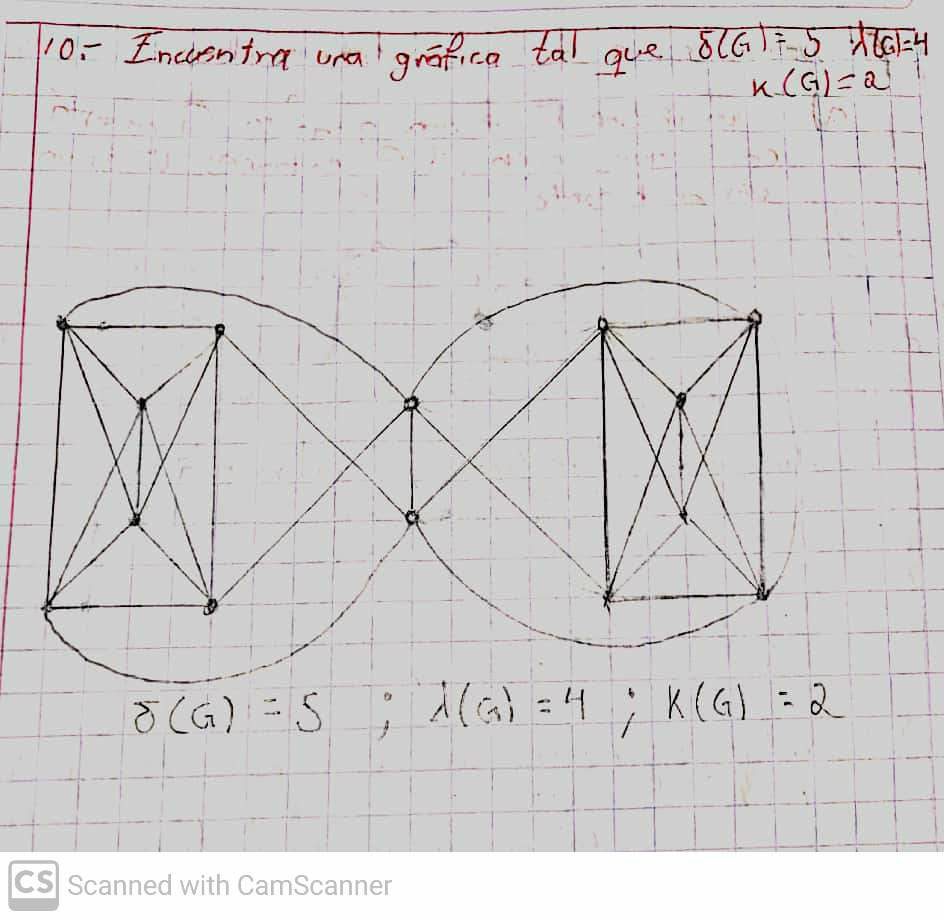 10.- Encuentra una gráfica tal que δ(G)=5 λ(G)=4
κ(G)=2
δ(G) = 5 ; λ(G) = 4 ; K(G) = 2
CS Scanned with CamScanner